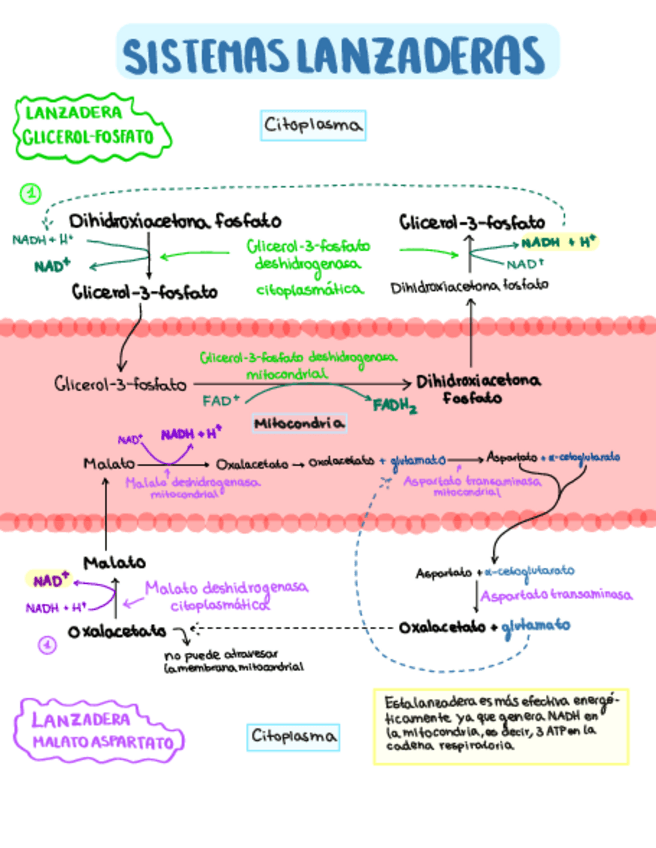 SISTEMAS LANZADERAS
LANZADERA
GLICEROL-FOSFATO
Citoplasma
1
Dihidroxiacetona fosfato
Glicerol-3-fosfato
NADH + H⁺
NAD⁺
Glicerol-3-fosfato
deshidrogenasa
citoplasmática
NADH + H⁺
NAD⁺
Glicerol-3-fosfato
Dihidroxiacetona fosfato
Glicerol-3-fosfato deshidrogenasa
mitocondrial
Glicerol-3-fosfato
Dihidroxiacetona
fosfato
FAD⁺
FADH₂
Mitocondria
NAD⁺
NADH + H⁺
Malato
Oxalacetato → Oxalacetato + glutamato
Aspartato + α-cetoglutarato
Malato deshidrogenasa
mitocondrial
Aspartato transaminasa
mitocondrial
Malato
NAD⁺
NADH + H⁺
Malato deshidrogenasa
citoplasmática
Aspartato + α-cetoglutarato
Aspartato transaminasa
1
Oxalacetato
Oxalacetato + glutamato
no puede atravesar
la membrana mitocondrial
LANZADERA
MALATO ASPARTATO
Citoplasma
Esta lanzadera es más efectiva energé-
ticamente ya que genera NADH en
la mitocondria, es decir, 3 ATP en la
cadena respiratoria